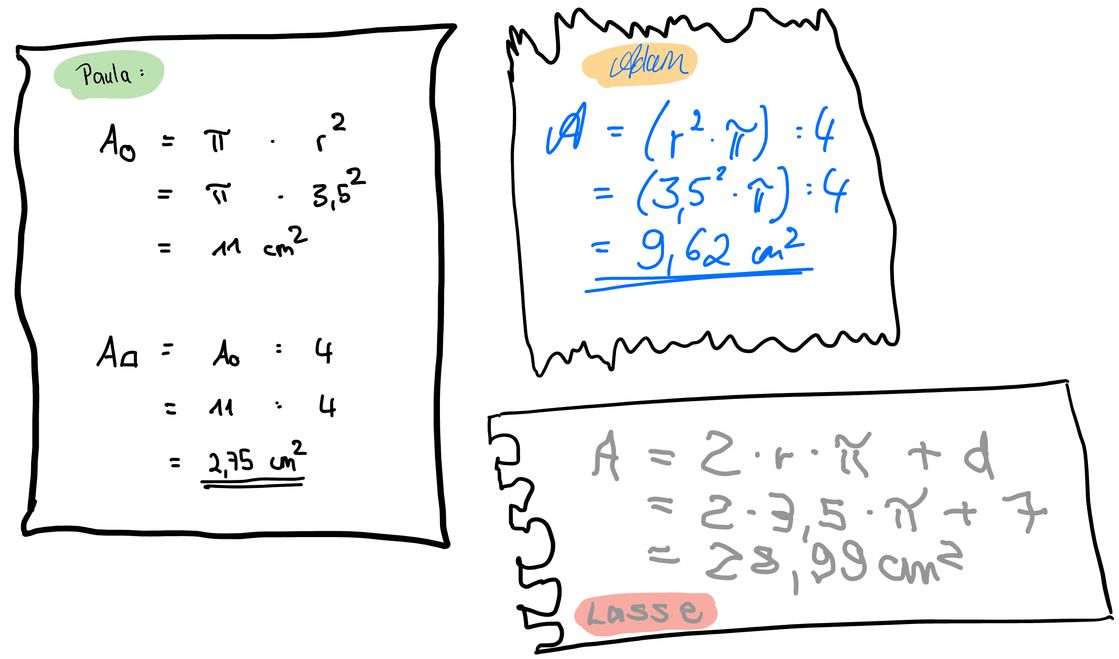 Paula:
A○ = π · r²
= π · 3,5²
= 11 cm²
A□ = A○ : 4
= 11 : 4
= 2,75 cm²
Adam
A = (r² · π) : 4
= (3,5² · π) : 4
= 9,62 cm²
A = 2 · r · π + d
= 2 · 3,5 · π + 7
= 28,99 cm²
Lasse